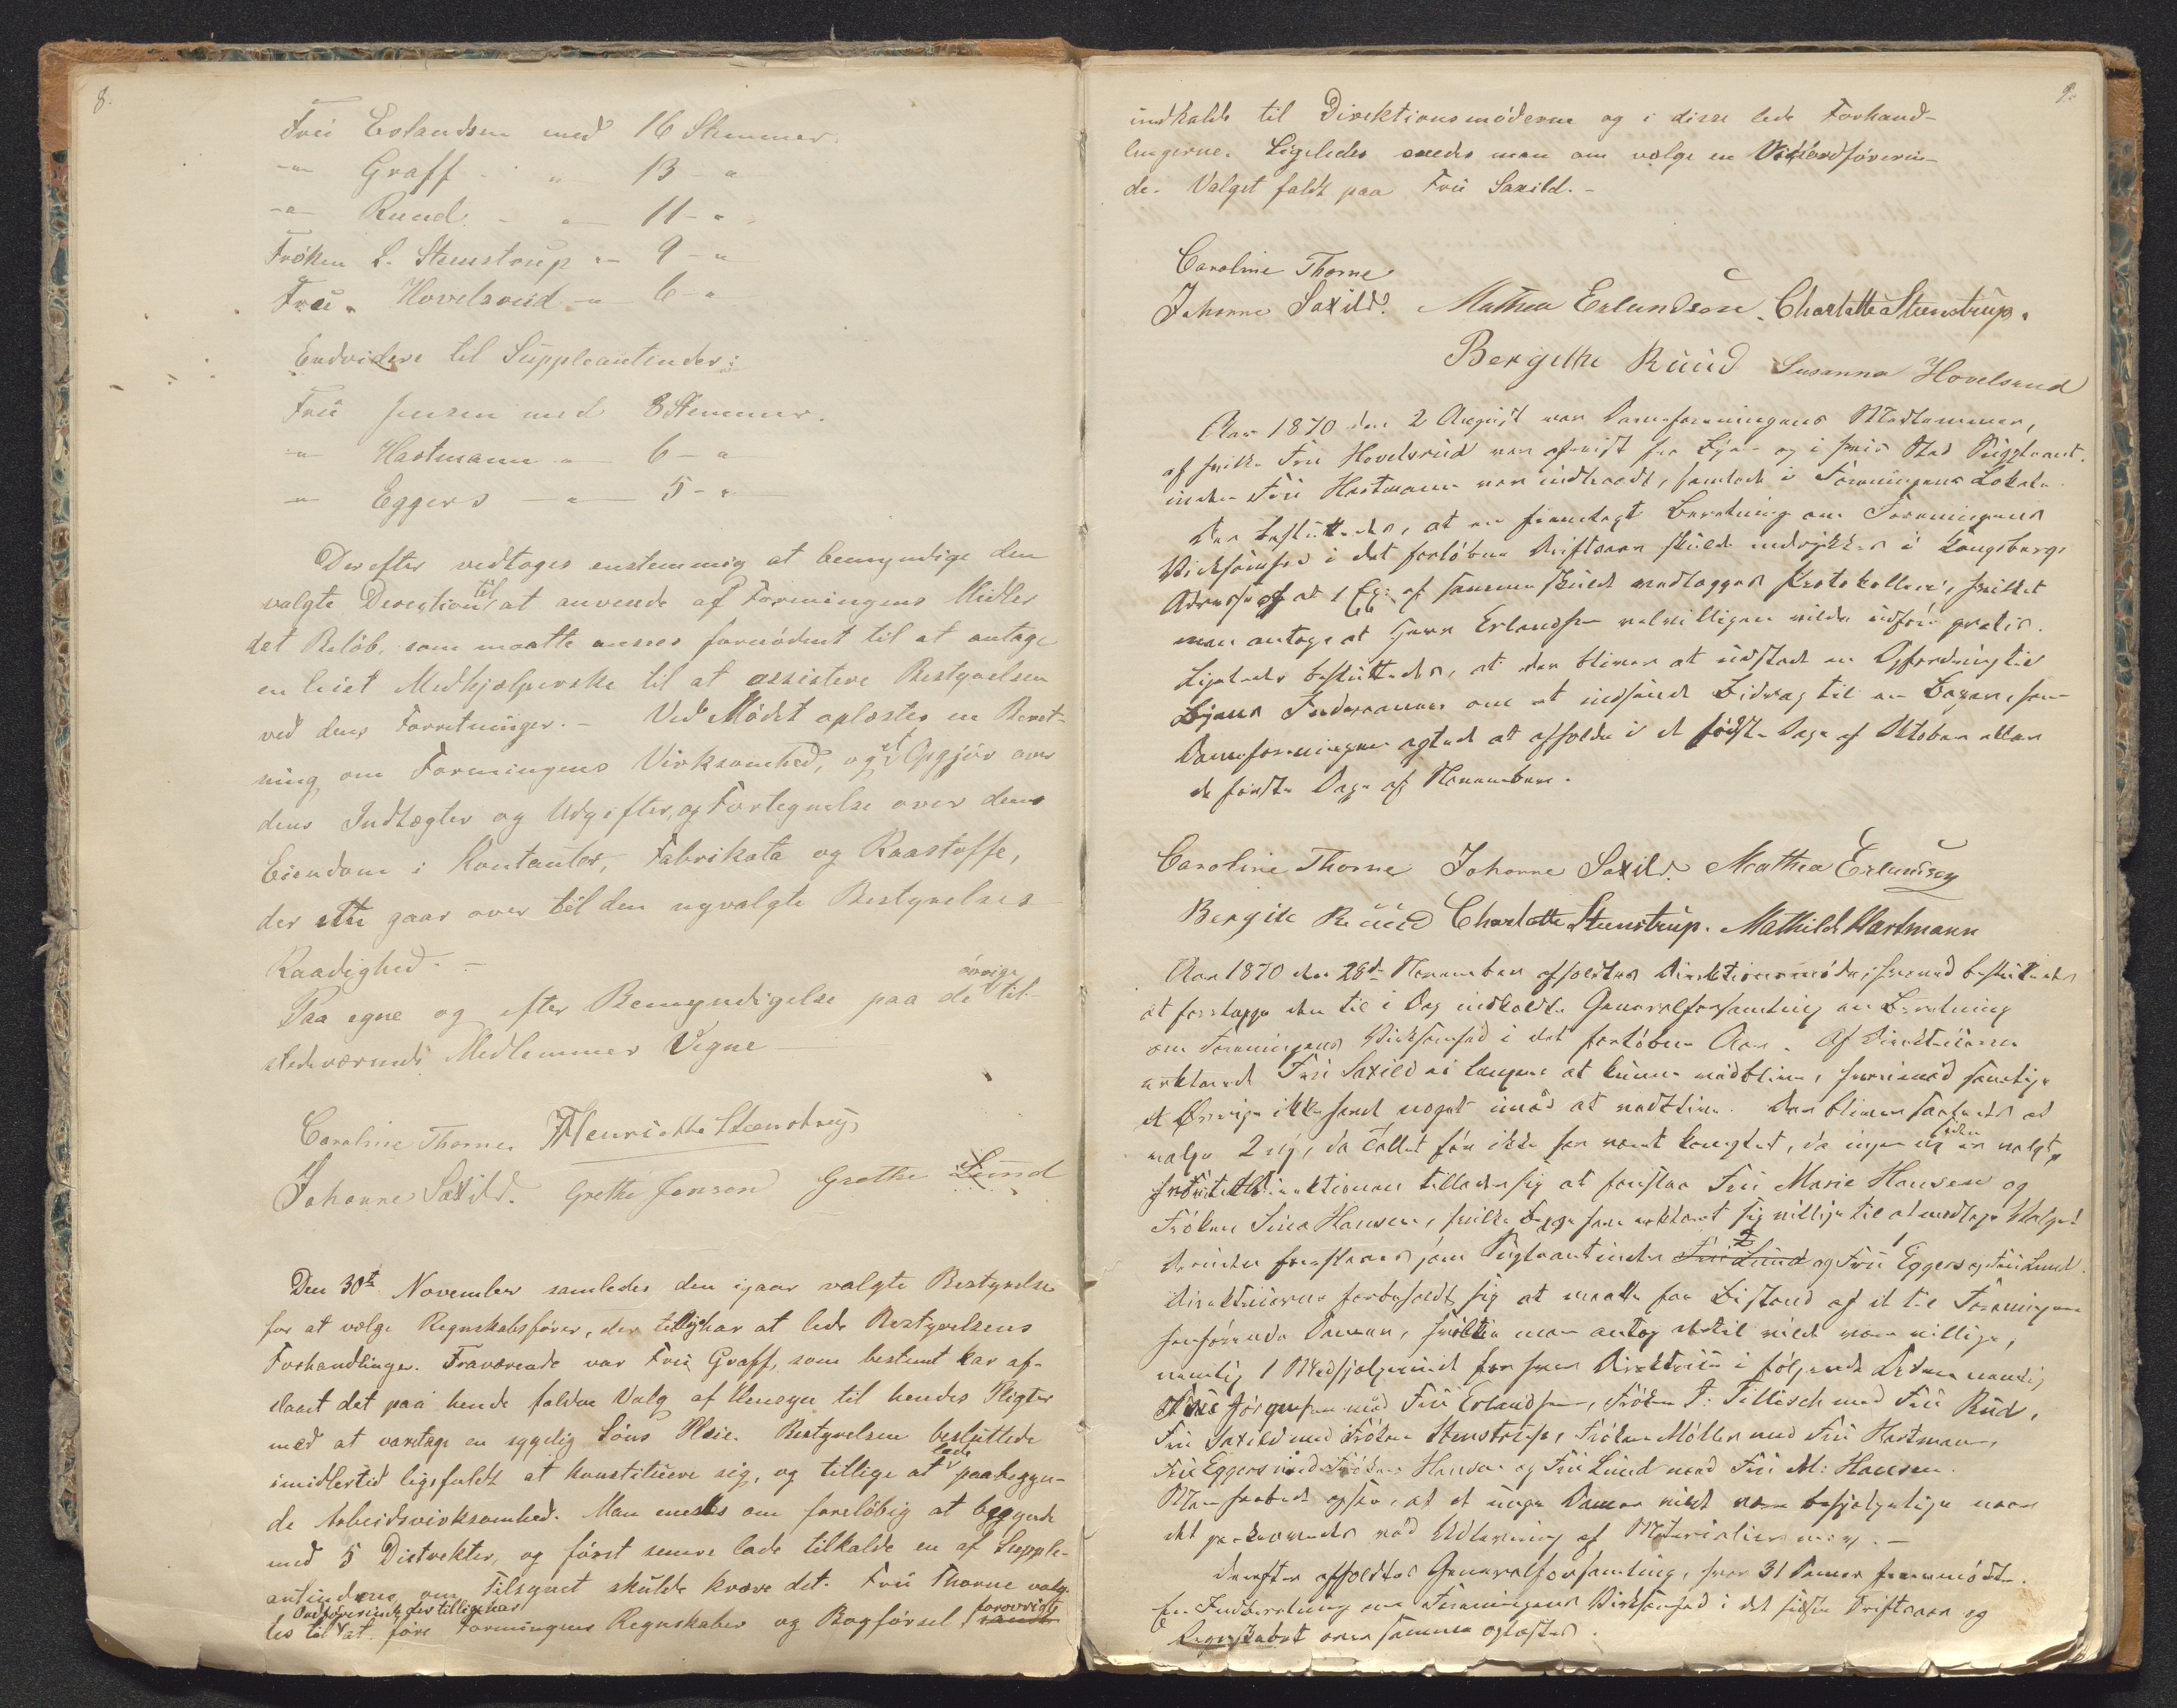 8.
Frú Erlandsen med 16 Stemmer.
-"- Graff - " 13 - "
-"- Ruud - " 11 - "
Fröken L. Steenstrup "- 9 - "
Frú. Hovelsrúd -"- 6 - "
Endvidere til Súppleantinder:
Frú Jensen med 8 Stemmer.
-"- Hartmann -"- 6 - "
-"- Eggers -"- 5 - "
Derefter vedtoges enstemmig at bemyndige den
valgte Derection til at anvende af Foreningens Midler
det Belöb, som maatte ansees fornödent til at antage
en leiet Medhjælperske til at assistere Bestyrelsen
ved dens Forretninger. - Ved Mödet oplæstes en Beret-
ning om Foreningens Virksomhed, og et Opgjör over
dens Indtægter og Udgifter, og Fortegnelse over dens
Eiendom i Kontanter, Fabrikata og Raastoffe,
der alle gaar over til den nyvalgte Bestyrelses
Raadighed. -
Paa egne og efter Bemyndigelse paa de övrige til-
stedeværende Medlemmer Vegne
Caroline Thorne. Henriette Steenstrup,
Johanne Saxild. Grethe Jensen Grethe Lund
Den 30te November samledes den igaar valgte Bestyrelse
for at vælge Regnskabsförer, der tillige har at lede Bestyrelsens
Forhandlinger. Fraværende var Frú Graff, som bestemt har af-
slaaet det paa hende faldne Valg af Hensyn til hendes Pligter
med at varetage en sygelig Söns Pleie. Bestyrelsen beslúttede
imidlertid ligefúldt at konstitúere sig, og tillige at lade paabegyn-
de Arbeidsvirksomhed. Man enedes om foreløbig at begynde
med 5 Distrikter, og först senere lade tilkalde en af Supple-
antinderne om Tilsynet skúlde kræve det. Frú Thorne valg-
tes til Ordförerinde der tillige har at före Foreningens Regnskaber og Bogförsel forøvrigt samt
9.
indkalde til Direktionsmöderne og i disse lede Forhand-
lingerne. Ligeledes enedes man om vælge en Viceordförerin-
de. Valget faldt paa Frú Saxild. -
Caroline Thorne
Johanne Saxild. Mathea Erlandsen. Charlotte Steenstrup.
Bergithe Rúúd Susanna Hovelsrud
Aar 1870 den 2 August var Dameforeningens Medlemmer,
af hvilke Frú Hovelsrúd var afreist fra Byen og i hvis Sted Súppleant-
inden Frú Hartmann var indtraadt, samlede i Foreningens Lokale.
Der beslúttedes, at en fremlagt Beretning om Foreningens
Virksomhed i det forlöbne Driftsaar skúlde indrykkes i Kongsbergs
Adresse og at 1 Ex: af samme skúlde vedlægges Protokollen, hvilket
man antoge at Herr Erlandsen velvilligen vilde údföre gratis.
Ligeledes beslúttedes, at der bliver at údstede en Opfordring til
Byens Inderaaner om at indsende Bidrag til en Bazar, som
Dameforeningen agtede at afholde i de sidste Dage af Oktober eller
de förste Dage af November.
Caroline Thorne Johanne Saxild. Mathea Erlandsen
Bergite Rúúd Charlotte Steenstrup. Mathilde Hartmann
Aar 1870 den 28de November afholdtes Direktionsmöde, hvorved beslúttedes
at forelægge den til i Dag indkaldte Generalforsamling en Beretning
om Foreningens Virksomhed i det forlöbne Aar. Af Direktricerne
erklærede Frú Saxild ei længere at kúnne vedblive, hvorimod samtlige
de Øvrige ikke havde noget imod at vedblive. Der bliver saaledes at
vælge 2 ny, da Tallet för ikke har været komplet, da ingen ny siden er valgt,
Direktionen tillader sig at foreslaa Frú Marie Hansen og
Fröken Sina Hansen, hvilke begge have erklæret sig villige til at modtage Valget.
Desúden foreslaaes som Súppleantinder Frú Lúnd og Frú Eggers og Frú Lund.
Direktricerne forbeholdt sig at maatte faa Bistand af de til Foreningen
henhörende Damer, hvortil man antog at vilde være villige,
nemlig 1 Medhjælperinde for hver Direktrice i fölgende Orden nemlig
Frú Jörgensen med Frú Erlandsen, Fröken T: Tillisch med Frú Rúd,
Frú Saxild med Fröken Steenstrup, Fröken Möller med Frú Hartmann,
Frú Eggers med Fröken Hansen og Frú Lúnd med Frú M: Hansen.
Man haabede ogsaa, at de únge Damer vilde være behjælpelige naar
det paakrævedes ved Udlevering af Materialier m: v: . -
Derefter afholdtes Generalforsamling, hvor 31 Damer fremmödte.
En Indberetning om Foreningens Virksomhed i det sidste Driftsaar og
Regnskabet over samme oplæstes.